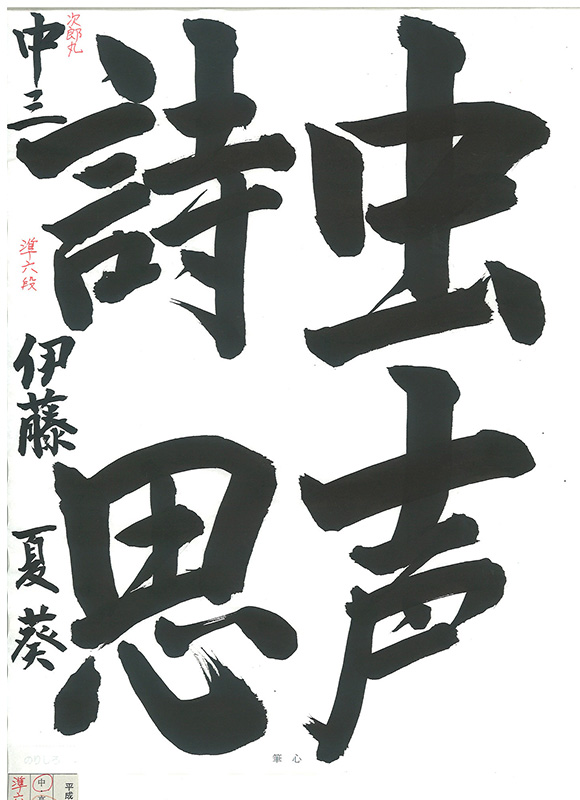 虫声
詩思
次郎丸
中三
準六段
伊藤
夏葵
心筆
のりしろ
平成
中
準六